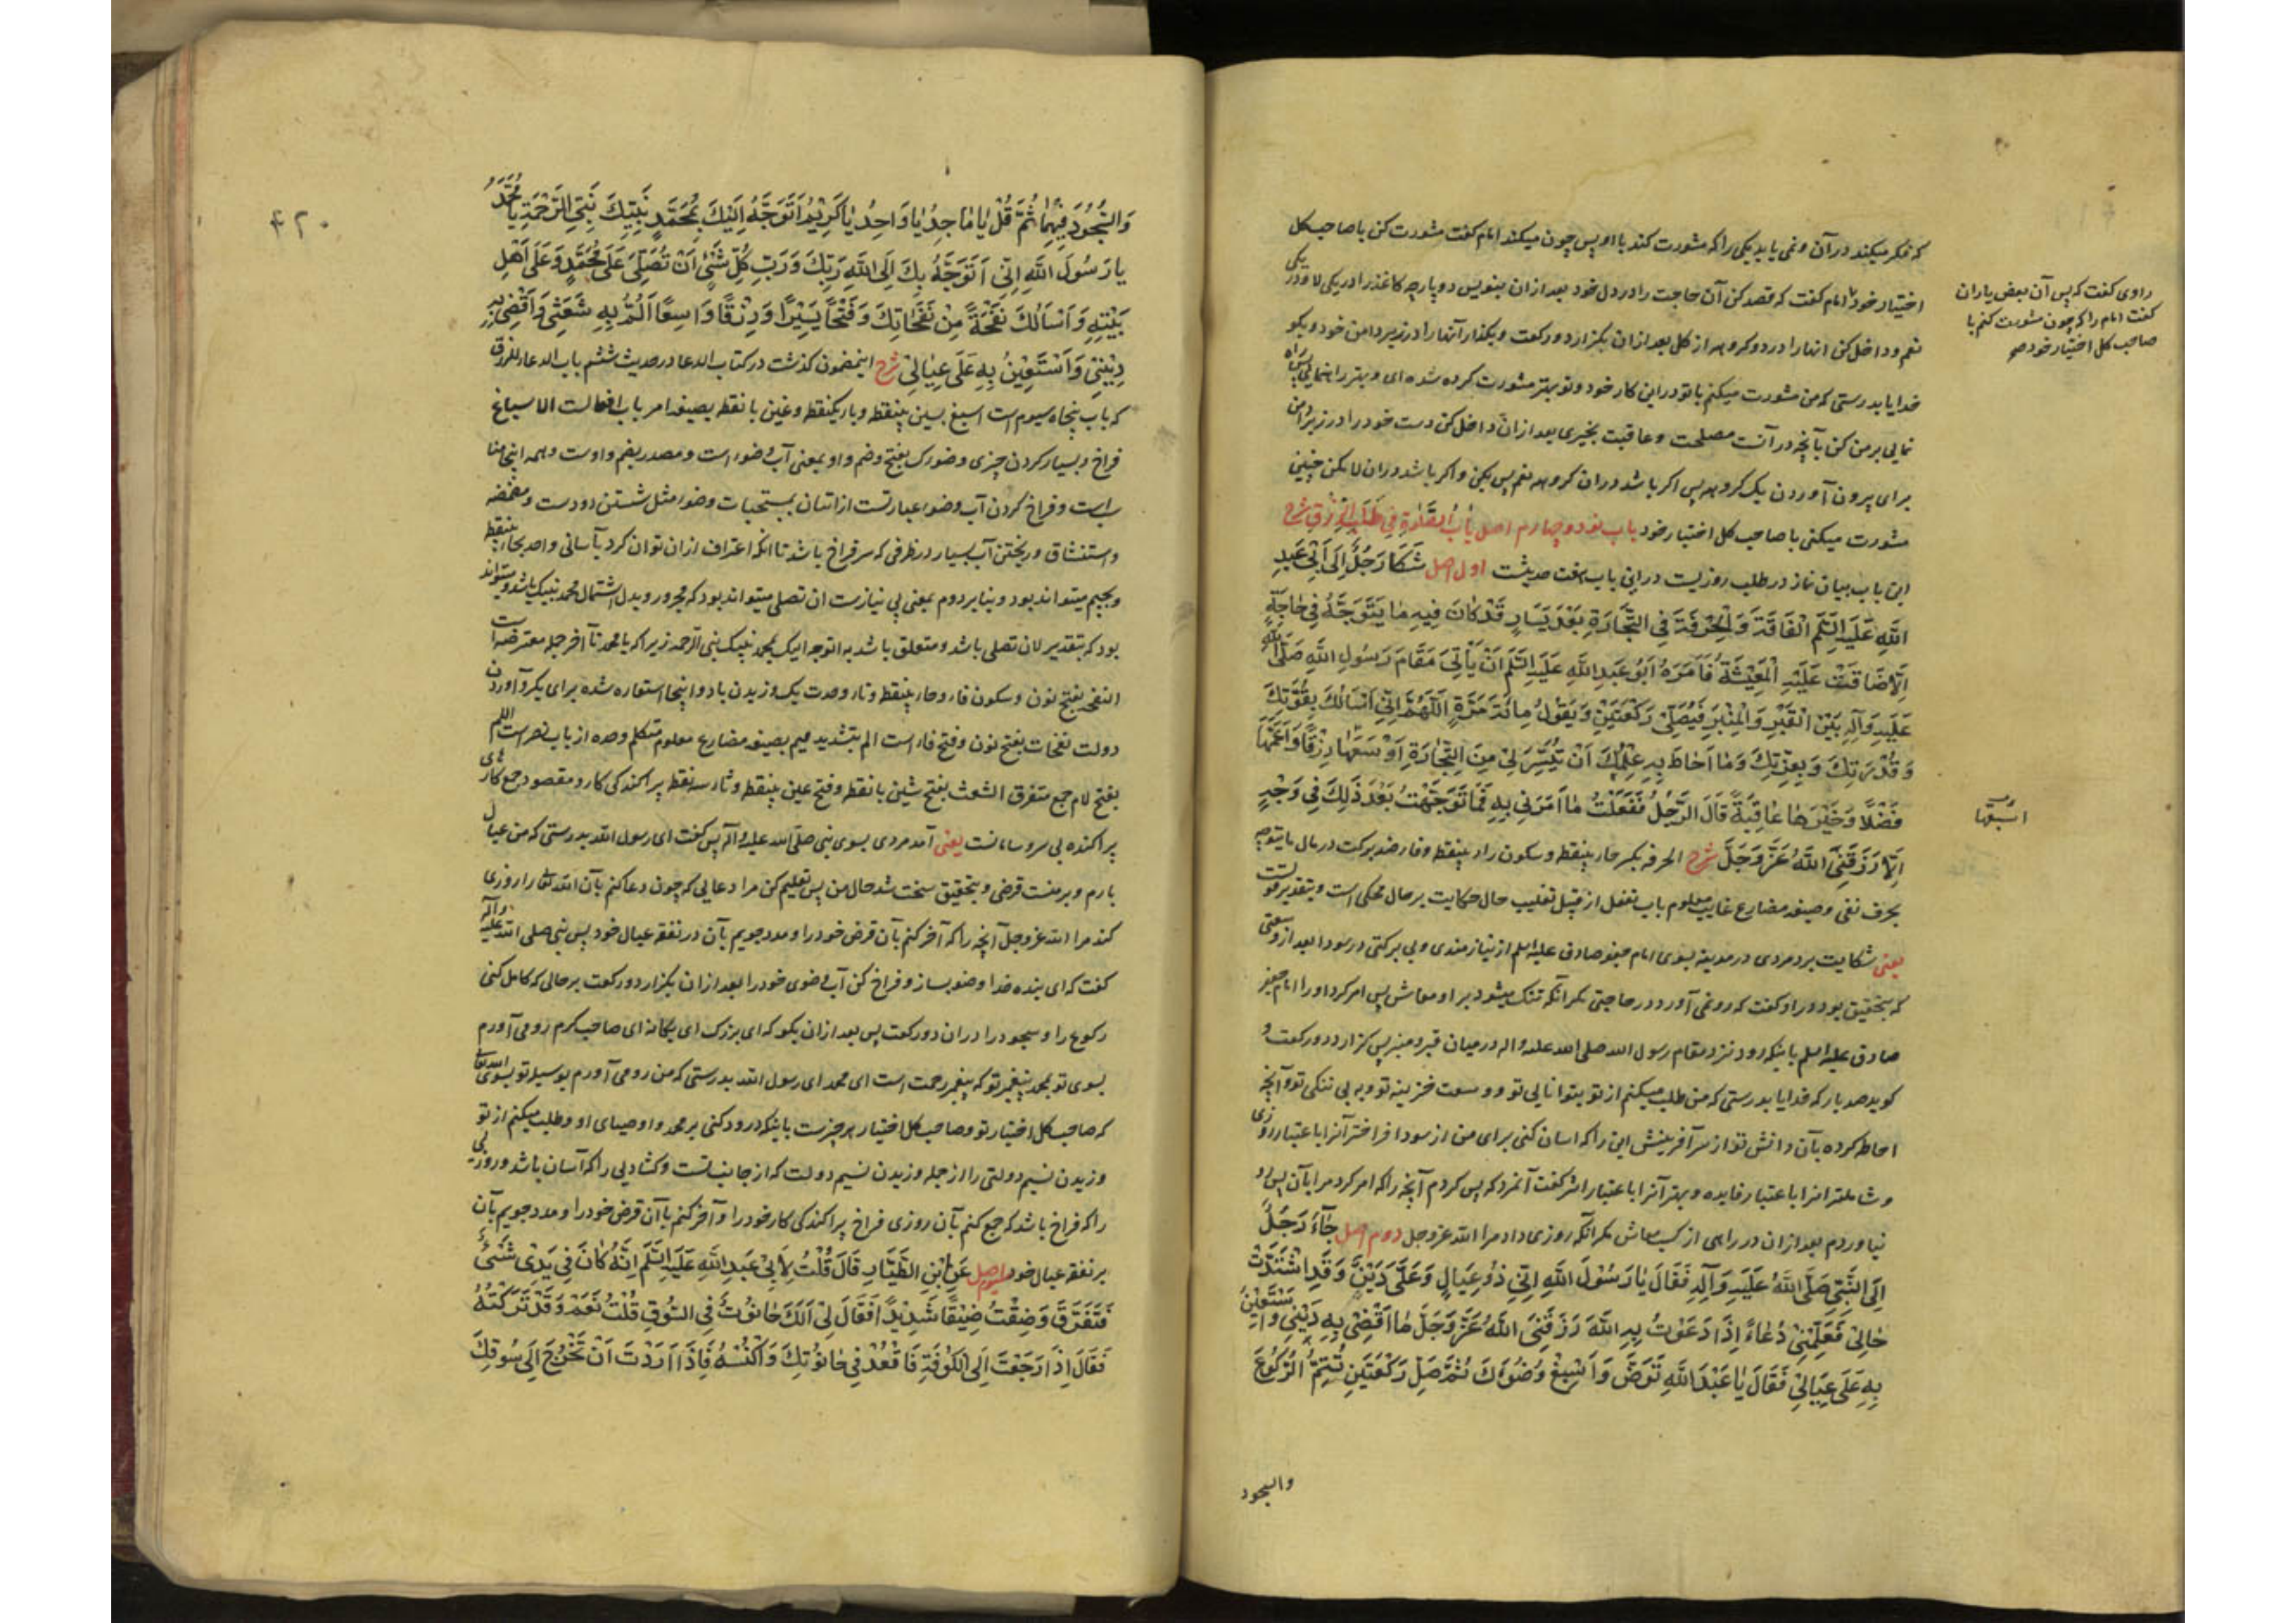 که فکر میکند در آن و نمی یابد یکی را که مشورت کند با او پس چون میکند امام گفت مشورت کن با صاحب کل
اختیار خود امام گفت که قصد کن آن حاجت را در دل خود بعد ازان بنویس دو پارچه کاغذ را در یکی لا و در یکی
نعم و داخل کن انها را در دو کروهه از کل بعد ازان بگزار دو رکعت و بگذار آنها را در زیر دامن خود و بگو
خدایا بدرستی که من مشورت میکنم با تو در این کار خود و تو بهتر مشورت کرده شده ای و بهتر راهنمایی پس راه
نمایی بر من کن بآنچه در آنست مصلحت و عاقبت بخیری بعد ازان داخل کن دست خود را در زیر دامن
برای بیرون آوردن یک کروهه پس اکر باشد دران کروهه نعم پس بکن و اکر باشد دران لا مکن چنین
مشورت میکنی با صاحب کل اختیار خود باب نود و چهارم اصل بَابُ الصَّلوةِ فِي طَلَبِ الرِّزْقِ شرح
این باب بیان نماز در طلب روزیست در این باب هفت حدیثست اول اصل شَكَا رَجُلٌ إِلَى أَبِي عَبْدِ
اللهِ عَلَيْهِ السَّلَم الْفَاقَةَ وَالْحُرْفَةَ فِي التِّجَارَةِ بَعْدَ يَسَارٍ قَدْ كَانَ فِيهِ مَا يَتَوَجَّهُ فِي حَاجَةٍ
إِلَّا ضَاقَتْ عَلَيْهِ الْمَعِيشَةُ فَأَمَرَهُ أَبُو عَبْدِ اللهِ عَلَيْهِ السَّلَم أَنْ يَأْتِيَ مَقَامَ رَسُولِ اللهِ صَلَّى اللهُ
عَلَيْهِ وَآلِهِ بَيْنَ الْقَبْرِ وَالْمِنْبَرِ فَيُصَلِّيَ رَكْعَتَيْنِ وَيَقُولُ مِائَةَ مَرَّةٍ اَللّٰهُمَّ إِنِّي أَسْأَلُكَ بِقُوَّتِكَ
وَقُدْرَتِكَ وَبِعِزَّتِكَ وَمَا أَحَاطَ بِهِ عِلْمُكَ أَنْ تُيَسِّرَ لِي مِنَ التِّجَارَةِ أَوْسَعَهَا رِزْقًا وَأَعَمَّهَا
فَضْلًا وَخَيْرَهَا عَاقِبَةً قَالَ الرَّجُلُ فَفَعَلْتُ مَا أَمَرَنِي بِهِ فَمَا تَوَجَّهْتُ بَعْدَ ذَلِكَ فِي وَجْهٍ
إِلَّا رَزَقَنِيَ اللهُ عَزَّ وَجَلَّ شرح الحرفه بکسر حاء بینقطه و سکون راء بینقطه و فا ضد برکت در مال ما یتوجه
بحرف نفی و صیغه مضارع غایب معلوم باب تفعل از قبیل تغلیب حال حکایت بر حال محکی است و بتقدیر
یعنی شکایت برد مردی در مدینه بسوی امام جعفر صادق علیه السلم از نیازمندی و بی برکتی در سودا بعد از وسعتی
که بتحقیق بود در او گفت که رو نمی آورد در حاجتی مکر آنکه تنک میشود بر او معاش پس امر کرد او را امام جعفر
صادق علیه السلم باینکه رود نزد مقام رسول الله صلی الله علیه واله در میان قبر و منبر پس گزارد دو رکعت و
کوید صد بار که خدایا بدرستی که من طلب میکنم از تو بتوانایی تو و وسعت خزینه تو و به بی ننکی تو و آنچه
احاطه کرده بآن دانش تو از سر آفرینش این را که اسان کنی برای من از سودا فراختر آنرا باعتبار روزی
و شاملتر انرا باعتبار فایده و بهتر آنرا باعتبار اثر گفت آنمرد که پس کردم آنچه را که امر کرد مرا بآن پس رو
نیاوردم بعد ازان در راهی از کسب معاش مکر آنکه روزی داد مرا الله عز و جل دوم اصل جَاءَ رَجُلٌ
إِلَى النَّبِيِّ صَلَّى اللهُ عَلَيْهِ وَآلِهِ فَقَالَ يَا رَسُولَ اللهِ إِنِّي ذُو عِيَالٍ وَعَلَيَّ دَيْنٌ وَقَدِ اشْتَدَّتْ
حَالِي فَعَلِّمْنِي دُعَاءً إِذَا دَعَوْتُ بِهِ اللهَ رَزَقَنِيَ اللهُ عَزَّ وَجَلَّ مَا أَقْضِي بِهِ دَيْنِي وَأَسْتَعِينُ
بِهِ عَلَى عِيَالِي فَقَالَ يَا عَبْدَ اللهِ تَوَضَّ وَأَسْبِغْ وُضُوءَكَ ثُمَّ صَلِّ رَكْعَتَيْنِ تُتِمُّ الرُّكُوعَ
والسجود
راوی گفت که پس آن بعض یاران
گفت امام را که چون مشورت کنم با
صاحب کل اختیار خود صح
اسبغها
۴۲۰
وَالسُّجُودَ فِيهِمَا ثُمَّ قُلْ يَا مَاجِدُ يَا وَاحِدُ يَا كَرِيمُ أَتَوَجَّهُ إِلَيْكَ بِمُحَمَّدٍ نَبِيِّكَ نَبِيِّ الرَّحْمَةِ يَا مُحَمَّدُ
يَا رَسُولَ اللهِ إِنِّي أَتَوَجَّهُ بِكَ إِلَى اللهِ رَبِّكَ وَرَبِّ كُلِّ شَيْءٍ أَنْ تُصَلِّيَ عَلَى مُحَمَّدٍ وَعَلَى أَهْلِ
بَيْتِهِ وَأَسْأَلُكَ نَفْحَةً مِنْ نَفَحَاتِكَ وَفَتْحًا يَسِيرًا وَرِزْقًا وَاسِعًا أَلُمُّ بِهِ شَعَثِي وَأَقْضِي بِهِ
دَيْنِي وَأَسْتَعِينُ بِهِ عَلَى عِيَالِي شرح اینمضمون گذشت در کتاب الدعا در حدیث ششم باب الدعاء للرزق
که باب پنجاه سیوم است اسبغ بسین بینقطه و باء یکنقطه و غین با نقطه بصیغه امر باب افعالست الاسباغ
فراخ و بسیار کردن چیزی وضوءک بفتح و ضم واو بمعنی آب وضوء است و مصدر بضم واوست و همه اینجا منا
سبست و فراخ کردن آب وضوء عبارتست از اتیان بمستحبات وضوء مثل شستن دو دست و مضمضه
و استنشاق و ریختن آب بسیار در ظرفی که سر فراخ باشد تا انکه اغتراف ازان توان کرد بآسانی واحد بحاء بینقطه
و بجیم میتواند بود و بنابر دوم بمعنی بی نیازست ان تصلی میتواند بود که مجرور و بدل اشتمال محمد نبیک باشد و میتواند
بود که بتقدیر لان تصلی باشد و متعلق باشد به اتوجه الیک بمحمد نبیک نبی الرحمه زیرا که یا محمد تا آخر جمله معترضه است
النفحه بفتح نون و سکون فاء و حاء بینقطه و تاء وحدت یک وزیدن باد و اینجا استعاره شده برای یکر آوردن
دولت نفحات بفتح نون و فتح فاء است الم بتشدید میم بصیغه مضارع معلوم متکلم وحده از باب نصر است اللم
بفتح لام جمع متفرق الشعث بفتح شین با نقطه و فتح عین بینقطه و ثاء سه نقطه پراکندگی کار و مقصود جمع کار های
پراکنده بی سر و سامانست یعنی آمد مردی بسوی نبی صلی الله علیه وآله پس گفت ای رسول الله بدرستی که من عیال
بارم و بر منست قرضی و بتحقیق سخت شد حال من پس تعلیم کن مرا دعایی که چون دعا کنم بآن الله تعالی را روزی
کند مرا الله عز و جل آنچه را که آخر کنم بآن قرض خود را و مدد جویم بآن در نفقه عیال خود پس نبی صلی الله علیه وآله
گفت که ای بنده خدا وضو بساز و فراخ کن آب وضوی خود را بعد ازان بگزار دو رکعت بر حالی که کامل کنی
رکوع را و سجود را دران دو رکعت پس بعد ازان بگو که ای بزرک ای یکانه ای صاحب کرم رو می آورم
بسوی تو بمحمد پیغمبر تو که پیغمبر رحمت است ای محمد ای رسول الله بدرستی که من رو می آورم بوسیله تو بسوی الله تعالی
که صاحب کل اختیار تو و صاحب کل اختیار هر چیزست باینکه درود کنی بر محمد و اوصیای او و طلب میکنم از تو
وزیدن نسیم دولتی را از جمله وزیدن نسیم دولت که از جانب تست و کشادیی را که آسان باشد و روزیی
را که فراخ باشد که جمع کنم بآن روزی فراخ پراکندگی کار خود را و آخر کنم بآن قرض خود را و مدد جویم بآن
بر نفقه عیال خود سیوم اصل عَنِ ابْنِ الطَّيَّارِ قَالَ قُلْتُ لِأَبِي عَبْدِ اللهِ عَلَيْهِ السَّلَم إِنَّهُ كَانَ فِي يَدِي شَيْءٌ
فَتَفَرَّقَ وَضِقْتُ ضِيقًا شَدِيدًا فَقَالَ لِي أَلَكَ حَانُوتٌ فِي السُّوقِ قُلْتُ نَعَمْ وَقَدْ تَرَكْتُهُ
فَقَالَ إِذَا رَجَعْتَ إِلَى الْكُوفَةِ فَاقْعُدْ فِي حَانُوتِكَ وَاكْنُسْهُ فَإِذَا أَرَدْتَ أَنْ تَخْرُجَ إِلَى سُوقِكَ